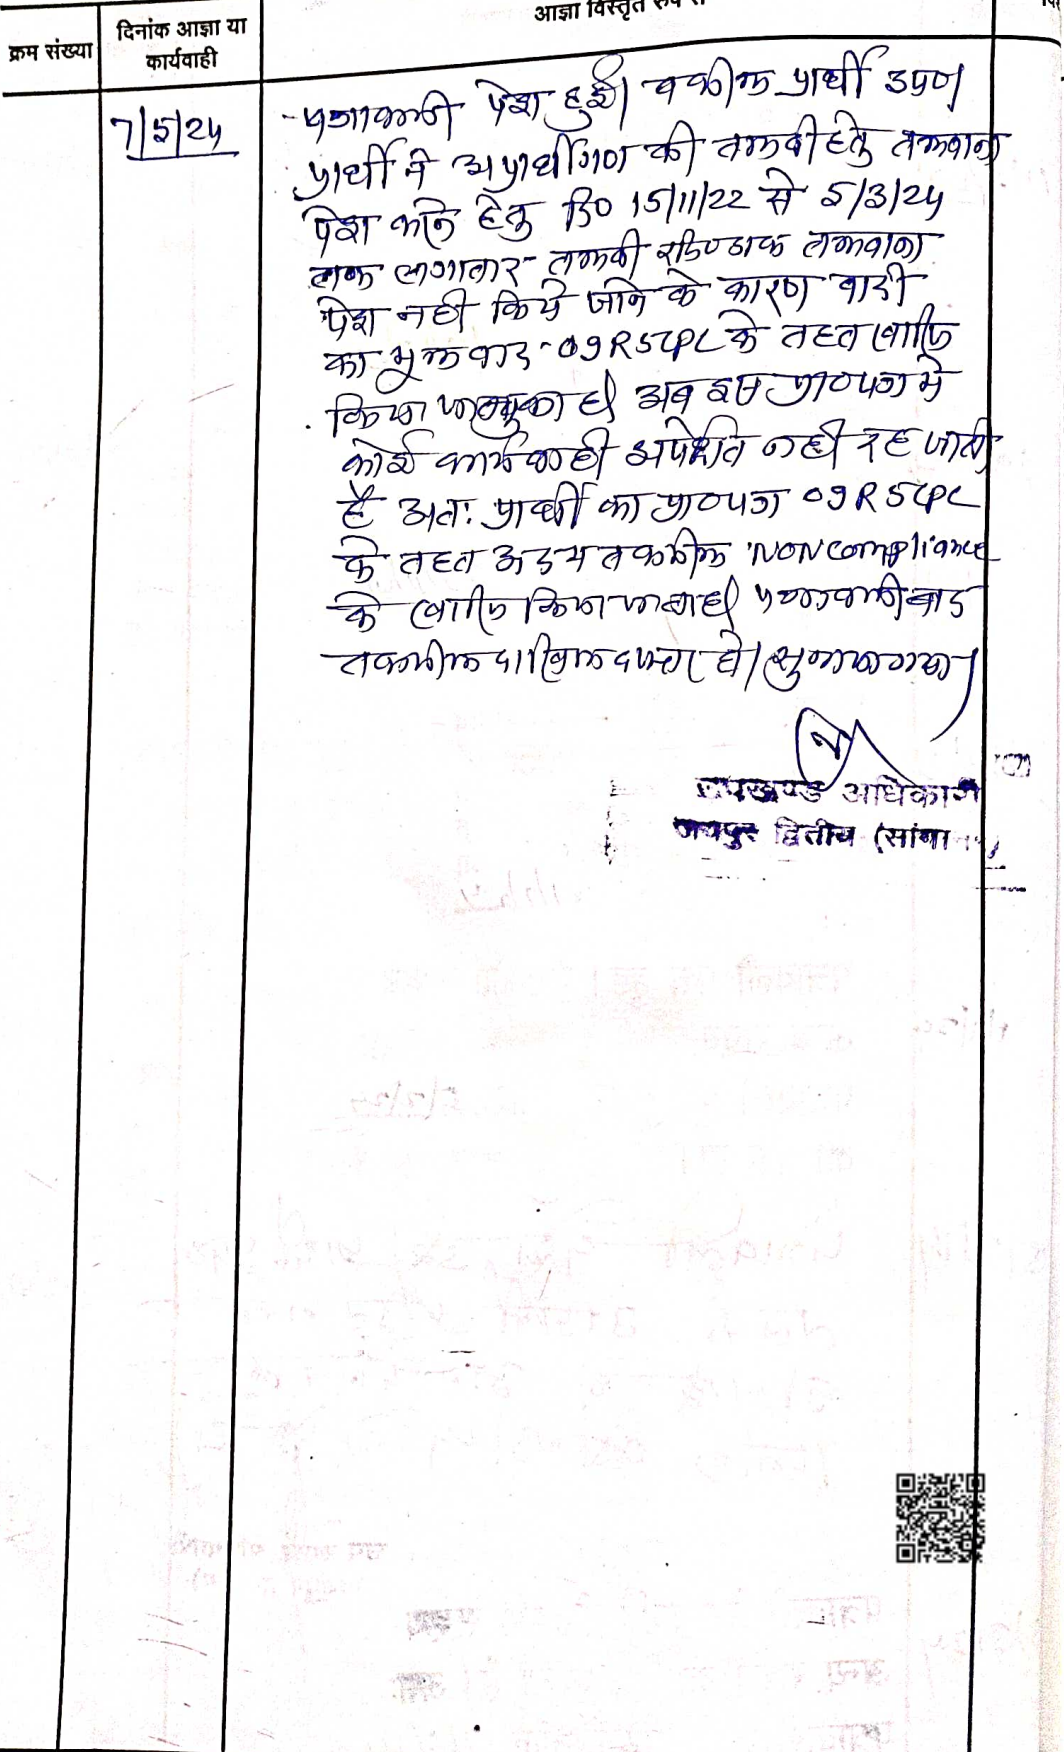 क्रम संख्या
दिनांक आज्ञा या
कार्यवाही
आज्ञा विस्तृत रूप से
7/5/24
पत्रावली पेश हुई। वकील प्रार्थी उप०
प्रार्थी ने अप्रार्थीगण की तलबी हेतु तलवाना
पेश करने हेतु दि० 15/11/22 से 5/3/24
तक लगातार तलबी रजि० डाक तलवाना
पेश नही किये जाने के कारण वादी
का मूल वाद 09R5CPC के तहत खारिज
किया जा चुका है। अब इस प्रा०पत्र मे
कोई कार्यवाही अपेक्षित नही रह जाती
है अतः प्रार्थी का प्रा०पत्र 09R5CPC
के तहत अदम तकमील NON compliance
के खारिज किया जाता है। पत्रावली बाद
तकमील दाखिल दफ्तर हो। सुनाया गया।
उपखण्ड अधिकारी
जयपुर द्वितीय (सांगा